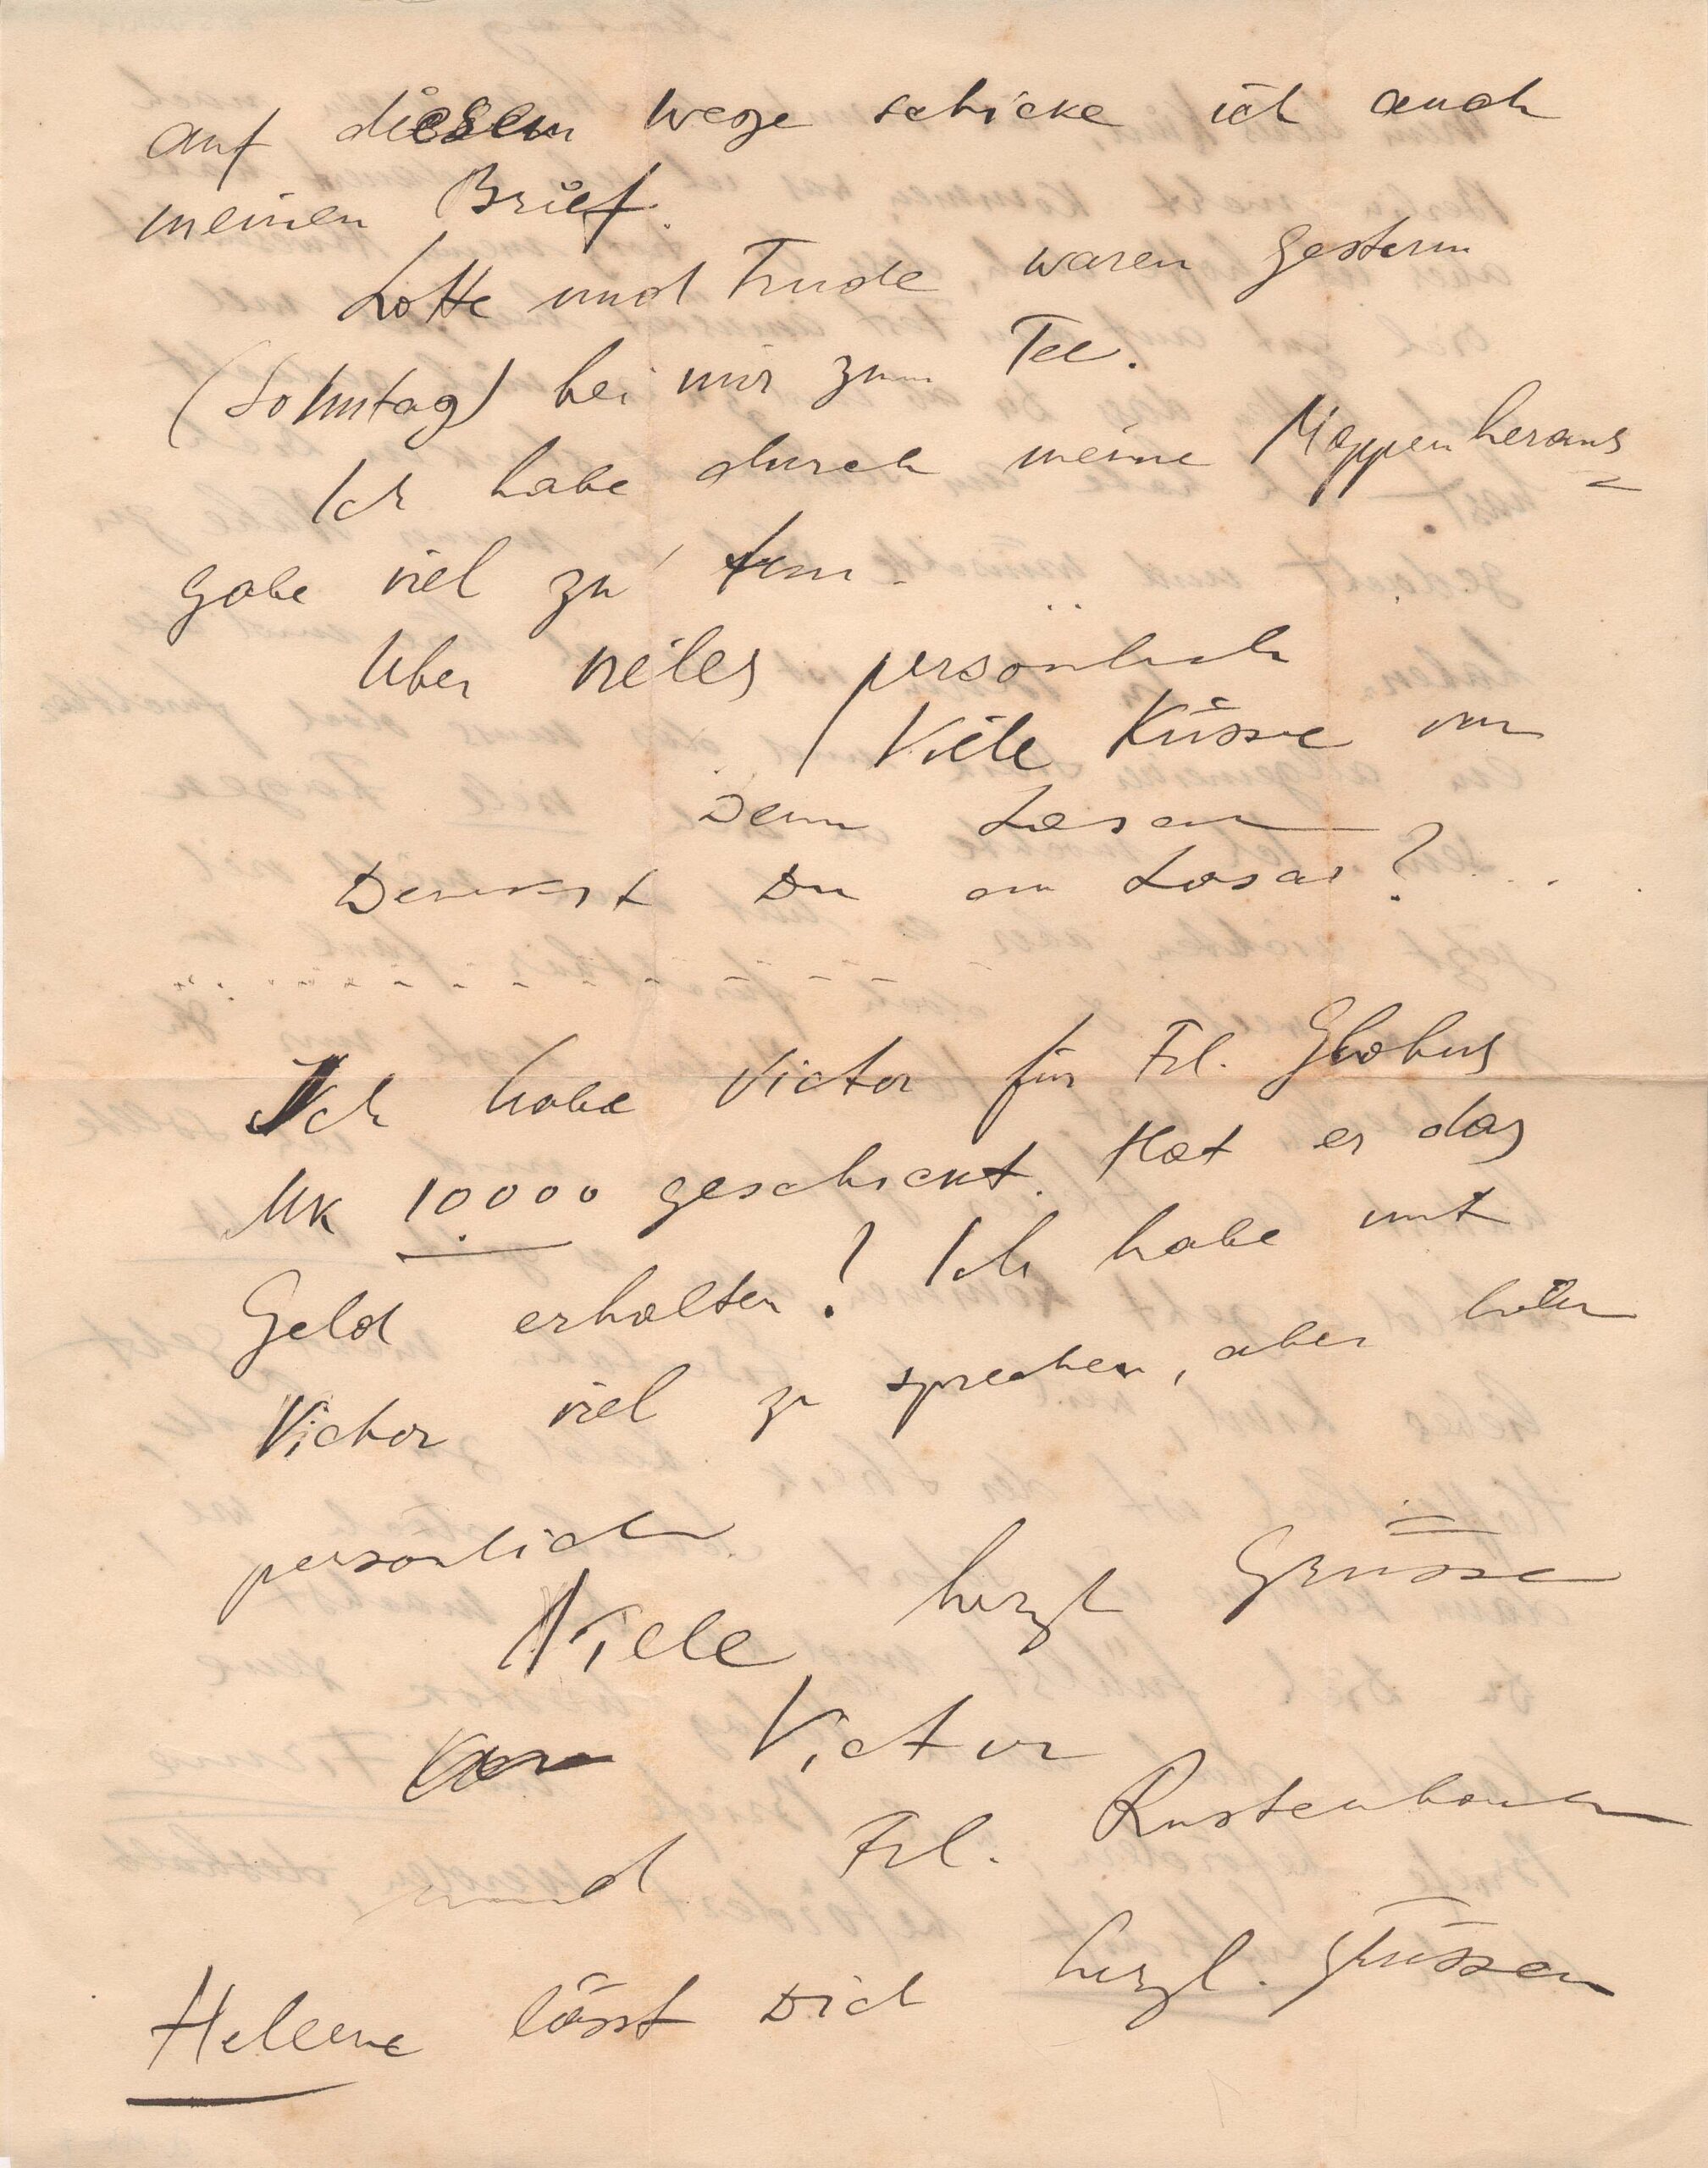 auf diesem Wege schicke ich auch
meinen Brief.
Lotte und Trude waren gestern
(Sonntag) bei mir zum Tee.
Ich habe durch meine Mappenheraus=
gabe viel zu tun.
Über vieles persönlich
Viele Küsse von
Dein Lasar
Denkst Du an Lasar? ...
Ich habe Victor für Frl. Globus
Mk 10000 geschickt. Hat er das
Geld erhalten? Ich habe mit
Victor viel zu sprechen, aber
persönlich.
Viele herzl Grüsse
Victor
und Frl.
Helene lässt Dich herzl. grüssen